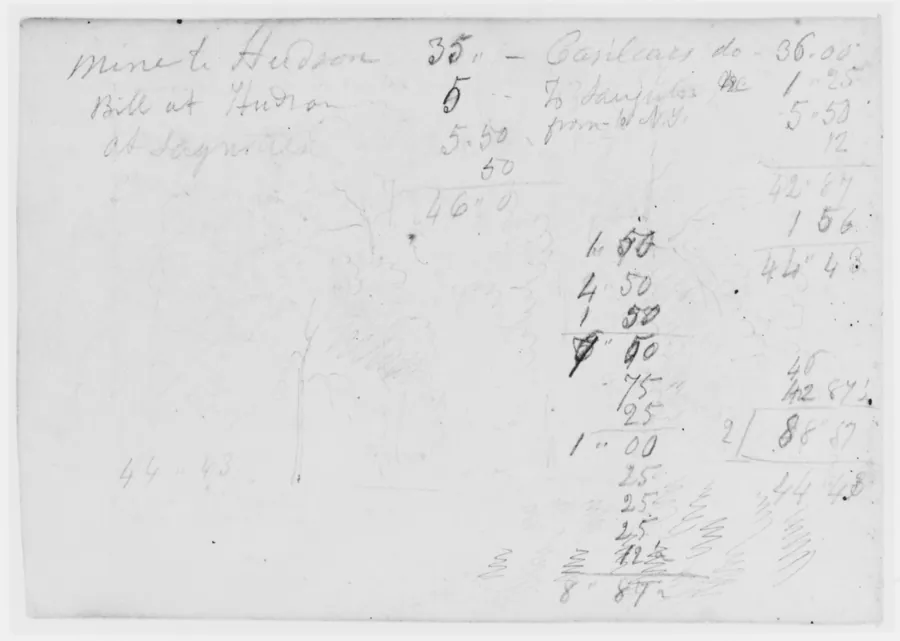 mine to Hudson 35 " —
Bill at Hudson 5 -
at 5 " 50
50
46 " 0
Casilears do - 36.00
To 1 " 25
from to N.Y. 5 " 50
12
42 " 87
1 56
44 " 43
1 " 50
4 50
1 50
" 50
75 "
25
1 " 00
25
25
25
12½
8 " 87½
46
42 87½
2 88 87
44 43
44 " 43